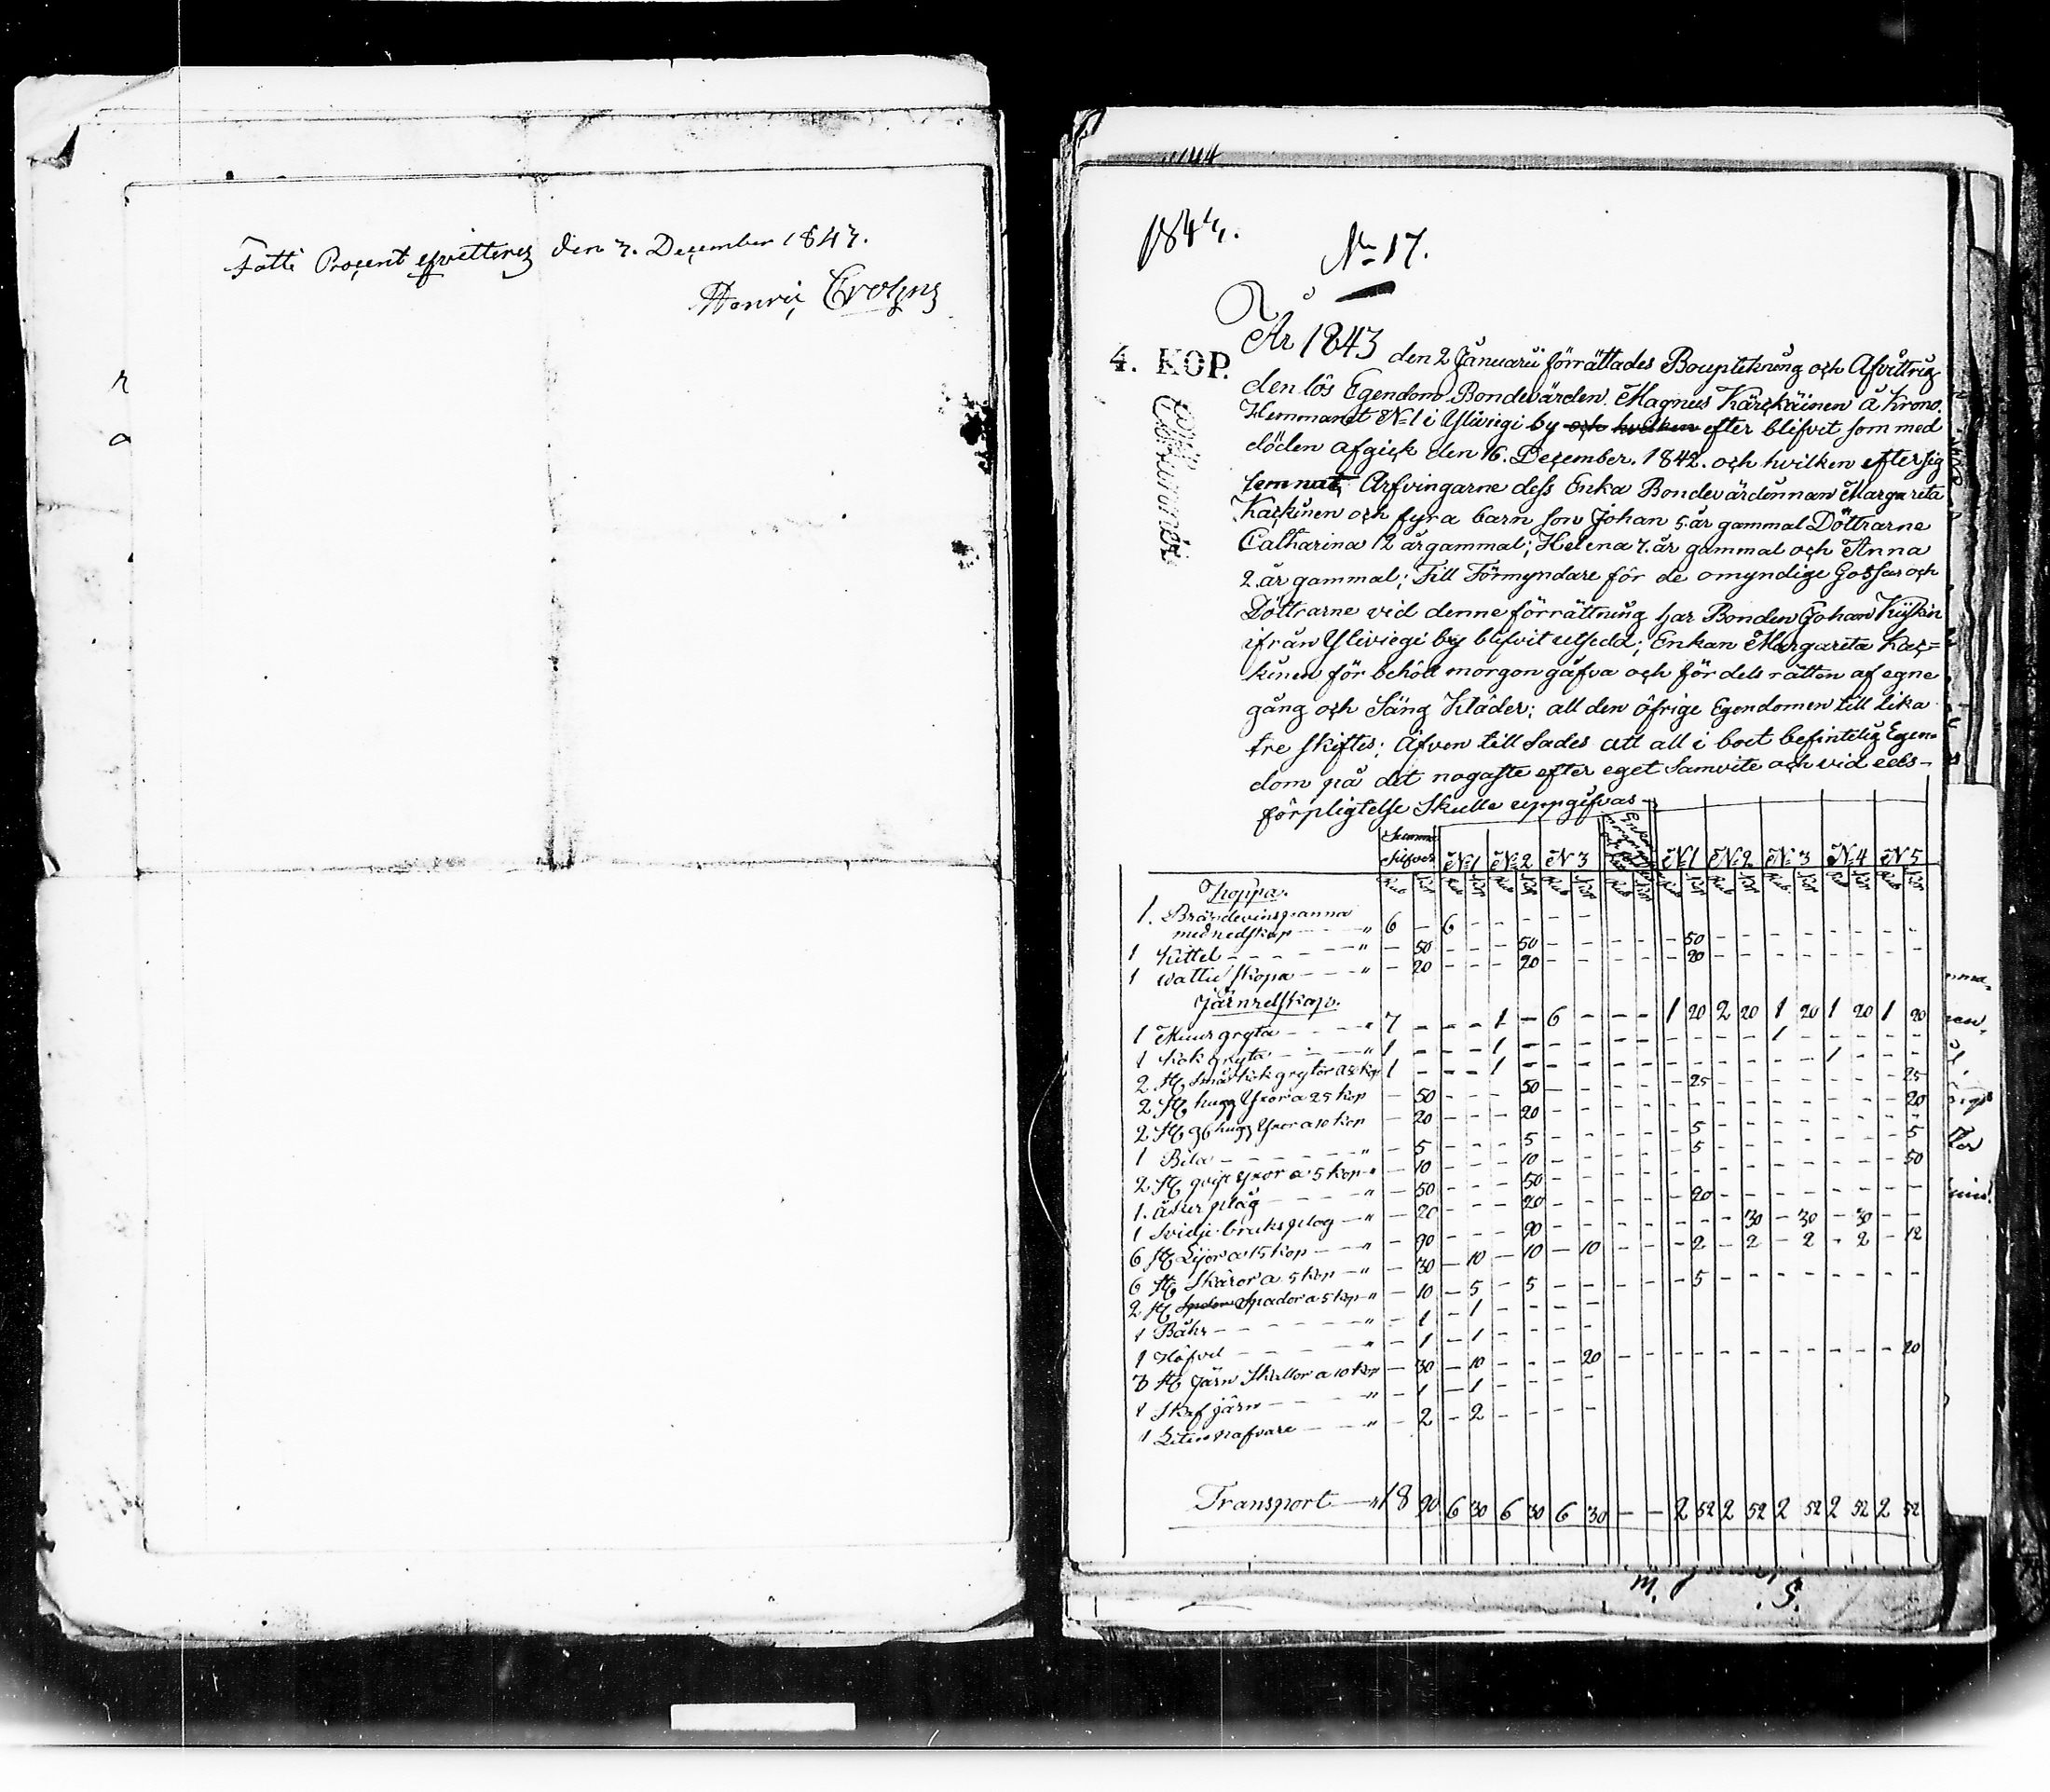 Fatti Procent qvitteras den 7. December 1847.
Henric
1844.
No 17.
4. KOP.
År 1843 den 2 Januarii förrättades Bouptekning och Afvittring
den lös Egendom Bondevärden Magnus Kärckäinen å Krono
Hemmanet No 1 i Yliviegi by och hvilken efter blifvit som med
döden afgick den 16. December. 1842. och hvilken efter sig
lemnat, Arfvingarne dess Enka Bondevärdinnan Margareta
Kackinen och fyra barn son Johan 5 år gammal Döttrarne
Catharina 12 år gammal; Helena 7. år gammal och Anna
2 år gammal; Till Förmyndare för de omyndige Gossar och
Döttrarne vid denne förrättning har Bonden Johan
ifrån Yliviegi by blifvit utsedd; Enkan Margareta Kac=
kinen för behölt morgon gåfva och för dels rätten af egne
gång och Säng Kläder; all den öfrige Egendomen till lika
tre skiftes; Äfven till sades att all i boet befintelig Egen-
dom på det nogaste efter eget Samvite och vid eds-
förpligtelse Skulle uppgifvas
Summa Silfver No 1 No 2 No 3 No 1 No 2 No 3 No 4 No 5
Koppar.
1. Brändevinspanna
med redskap — " 6 - 6 - - - - -
1 Kittel — " - 50 - - - 50 - - - - - 50 - - - - - - - -
1 wattu skopa — " - 20 - - - 20 - - - - - 20 - - - - - - - -
Järnredskap.
1 Muur gryta — " 7 - - - 1 - 6 - - - 1 20 2 20 1 20 1 20 1 20
1 Kok gryta — " 1 - - - 1 - - - - - - - - - 1 - - - - -
2 st små kok grytor a 50 kop 1 - - - 1 - - - - - - - - - - - 1 - - -
2 st hugg Yxor a 25 kop - 50 - - - 50 - - - - - 25 - - - - - - - 25
2 st hugg Yxor a 10 kop - 20 - - - 20 - - - - - - - - - - - - - 20
1 Bila — " - 5 - - - 5 - - - - - 5 - - - - - - - -
2 st qvist Yxor a 5 kop " - 10 - - - 10 - - - - - 5 - - - - - - - 5
1. åker plåg — " - 50 - - - 50 - - - - - - - - - - - - - 50
1 Svidje bruks plog — " - 20 - - - 20 - - - - - 20 - - - - - - - -
6 st Lijor a 15 kop — " - 90 - - - 90 - - - - - - - 30 - 30 - 30 - -
6 st Skäror a 5 kop — " - 30 - 10 - 10 - 10 - - - 2 - 2 - 2 - 2 - 12
2 st Spador a 5 kop " - 10 - 5 - 5 - - - - - 5 - - - - - - - -
1 — " - 1 - 1 - - - -
1 Höfvel — " - 1 - 1 - - - -
3 st Järn Skullor a 10 kop - 30 - 10 - - - 20 - - - - - - - - - - - 20
1 järn — " - 1 - 1 - - - -
1 Liten nafvare — " - 2 - 2 - - - -
Transport — " 18 90 6 30 6 30 6 30 - - 2 52 2 52 2 52 2 52 2 52